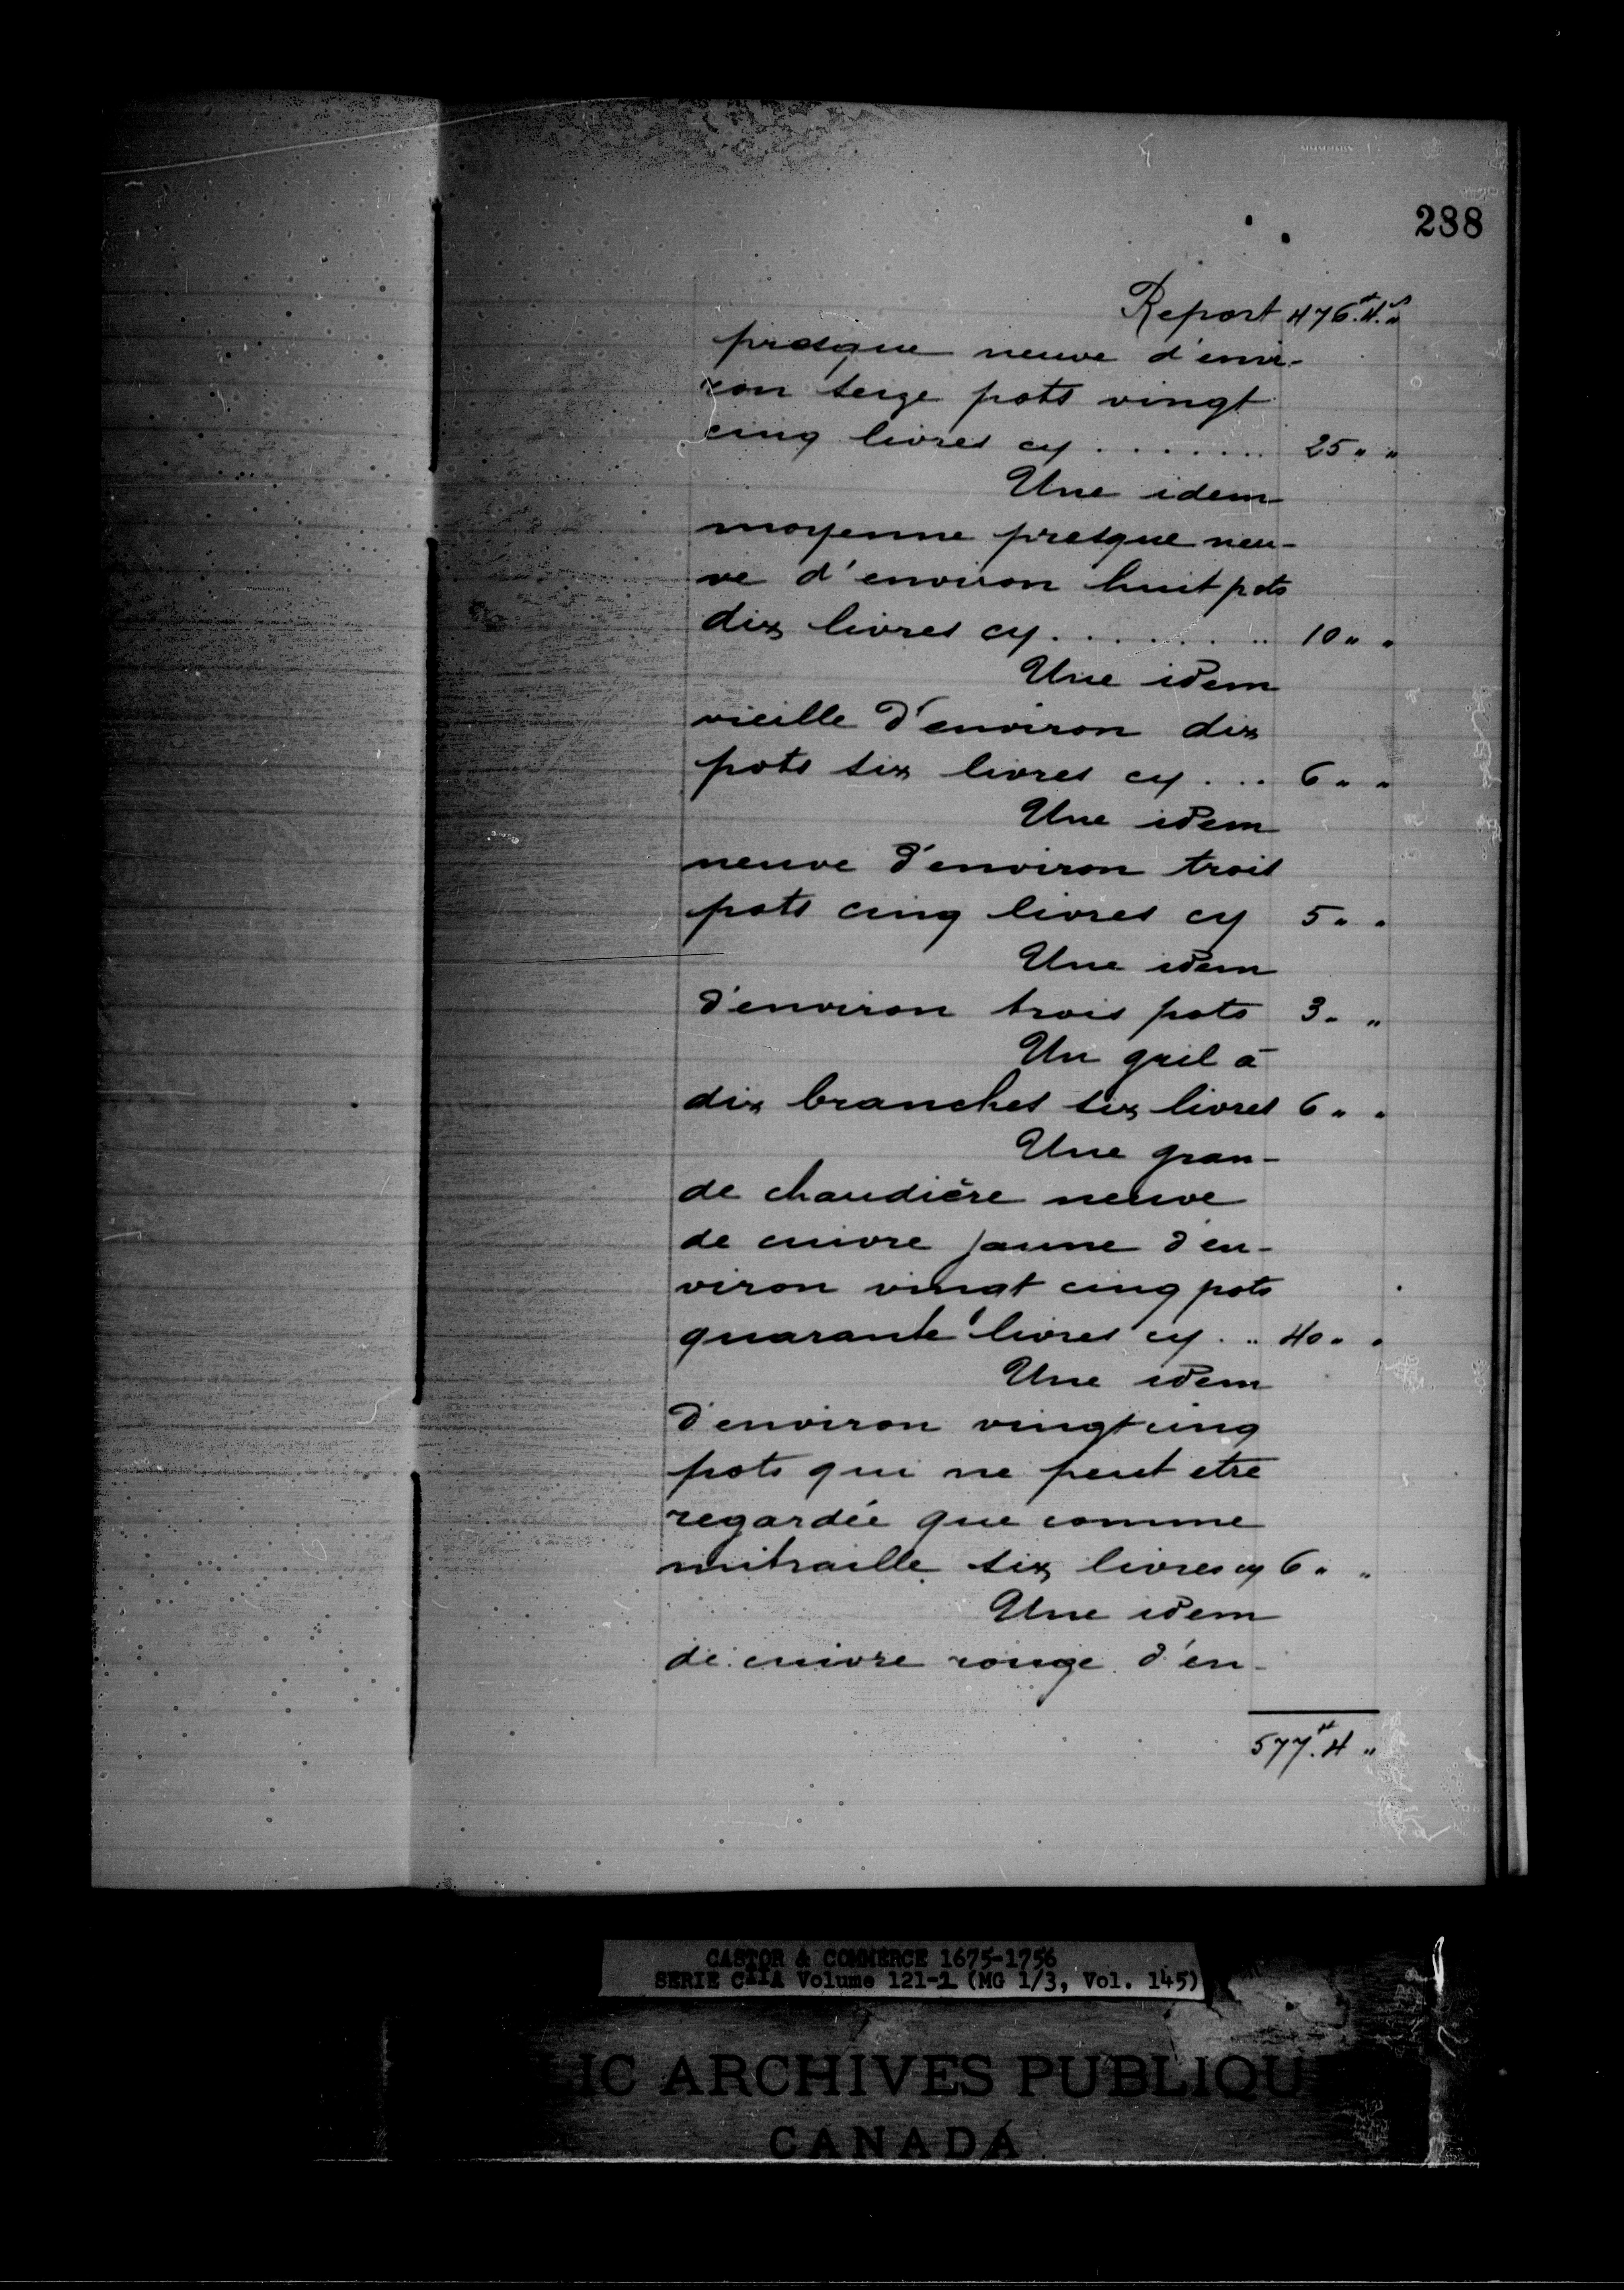 288
Report 476.# 4.s "
presque neuve d'envi-
ron seize pots vingt
cinq livres cy ........ 25 " "
Une idem
moyenne presque neu-
ve d'environ huit pots
dix livres cy ........ 10 " "
Une idem
vieille d'environ dix
pots six livres cy ... 6 " "
Une idem
neuve d'environ trois
pots cinq livres cy 5 " "
Une idem
d'environ trois pots 3 " "
Un gril à
dix branches six livres 6 " "
Une gran-
de chaudière neuve
de cuivre jaune d'en-
viron vingt cinq pots
quarante livres cy .. 40 " "
Une idem
d'environ vingt cinq
pots qui ne peut etre
regardée que comme
mitraille six livres cy 6 " "
Une idem
de cuivre rouge d'en-
577.# 4 "
CASTOR & COMMERCE 1675-1756
SERIE C11A Volume 121-1 (MG 1/3, Vol. 145)
LIC ARCHIVES PUBLIQU
CANADA